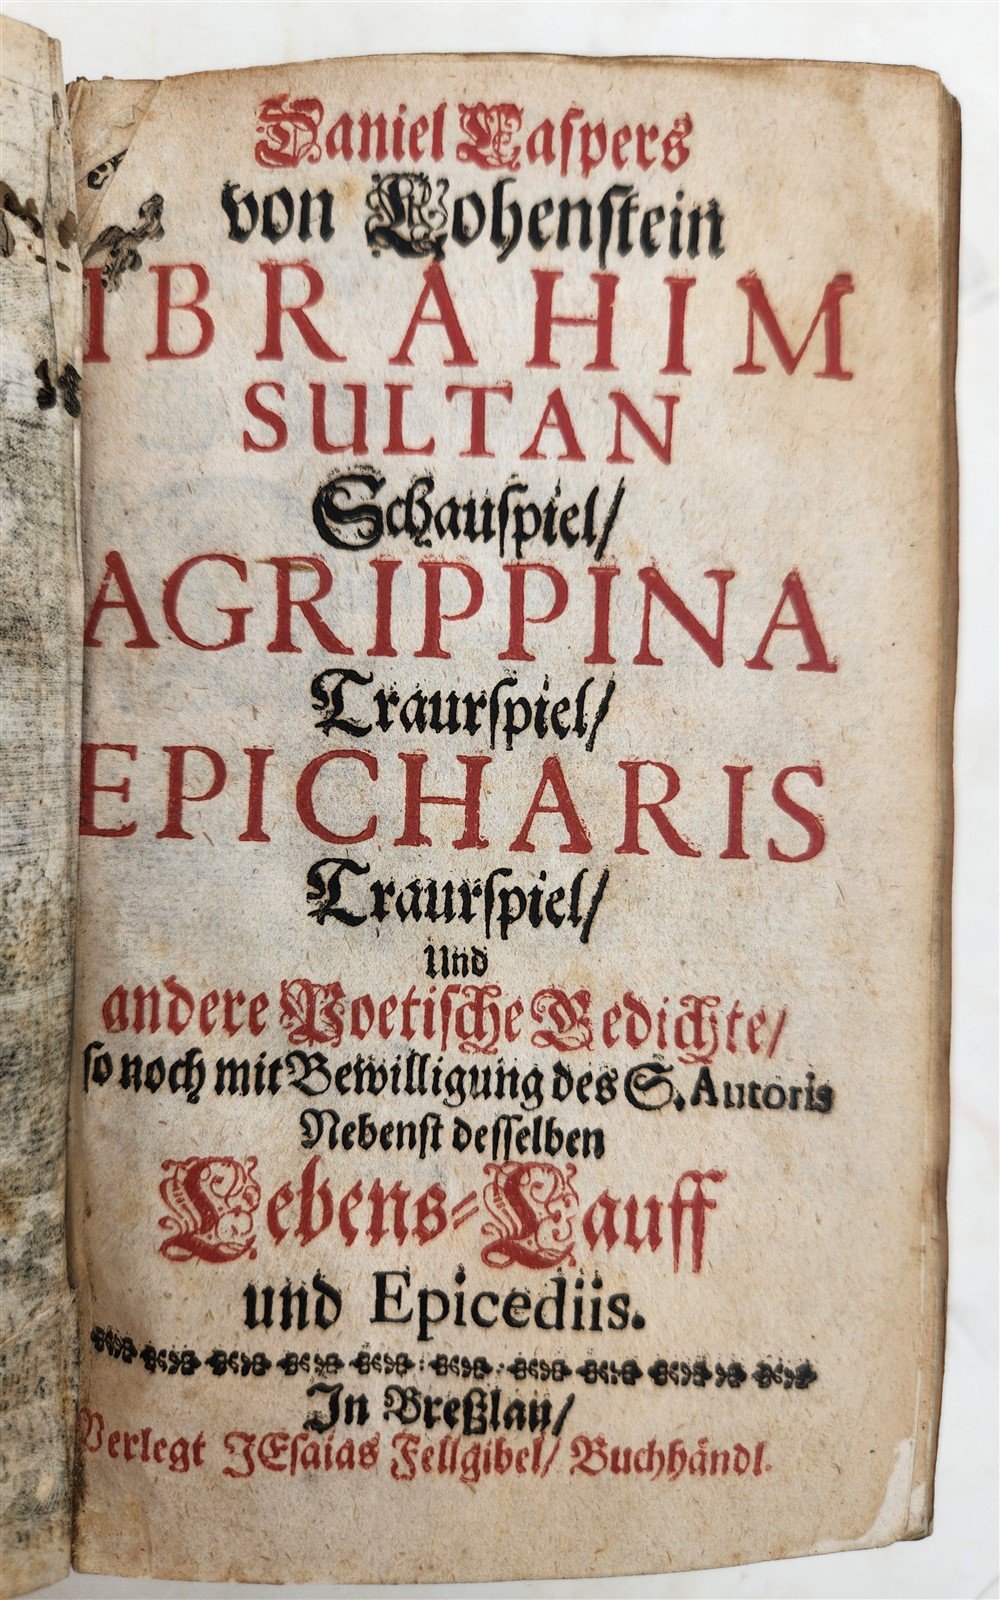 Daniel Caſpers
von Lohenſtein
IBRAHIM
SULTAN
Schauſpiel/
AGRIPPINA
Traurſpiel/
EPICHARIS
Traurſpiel/
Und
andere Poetiſche Gedichte/
ſo noch mit Bewilligung des S. Autoris
Nebenſt deſſelben
Lebens-Lauff
und Epicediis.
In Breßlau/
Verlegt JEſaias Fellgibel/ Buchhändl.